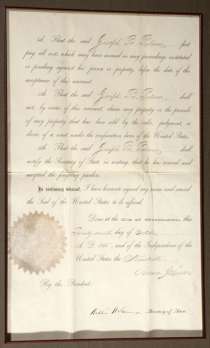 3d. That the said Joseph
pay all costs which may have accrued in any proceedings instituted
or pending against his person or property, before the date of the
acceptance of this warrant.
4th. That the said Joseph shall
not, by virtue of this warrant, claim any property or the proceeds
of any property that has been sold by the order, judgment, or
decree of a court under the confiscation laws of the United States.
5th. That the said Joseph shall
notify the Secretary of State, in writing, that he has received and
accepted the foregoing pardon.
In testimony whereof, I have hereunto signed my name and caused
the Seal of the United States to be affixed.
Done at the CITY OF WASHINGTON, this
day of
A. D. and of the Independence of the
United States the
Andrew Johnson
By the President:
Secretary of State.